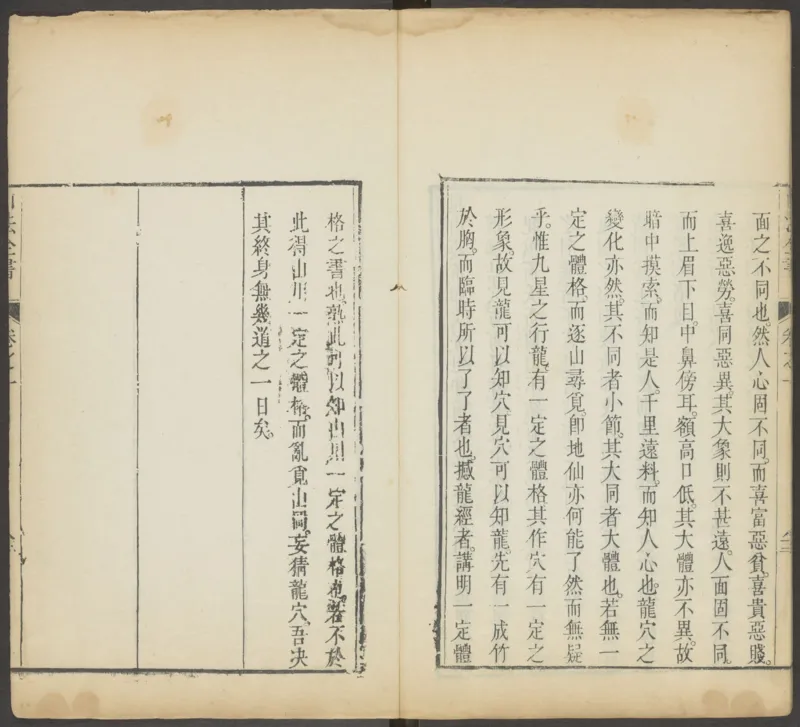 面之不同也。然人心固不同。而喜富惡貧。喜貴惡賤。
喜逸惡勞。喜同惡異。其大象則不甚遠。人面固不同。
而上眉下目。中鼻傍耳。額高口低。其大體亦不異。故
暗中摸索。而知是人。千里遠料。而知人心也。龍穴之
變化亦然。其不同者小節。其大同者大體也。若無一
定之體格。而逐山尋覓。卽地仙亦何能了然而無疑
乎。惟九星之行龍。有一定之體格。其作穴有一定之
形象。故見龍可以知穴。見穴可以知龍。先有一成竹
於胸。而臨時所以了了者也。撼龍經者。講明一定體
格之書也。熟此可以知山川一定之體格也。若不於
此得山川一定之體格。而亂覓山岡。妄猜龍穴。吾决
其終身無幾道之一日矣。
法全書
卷之一